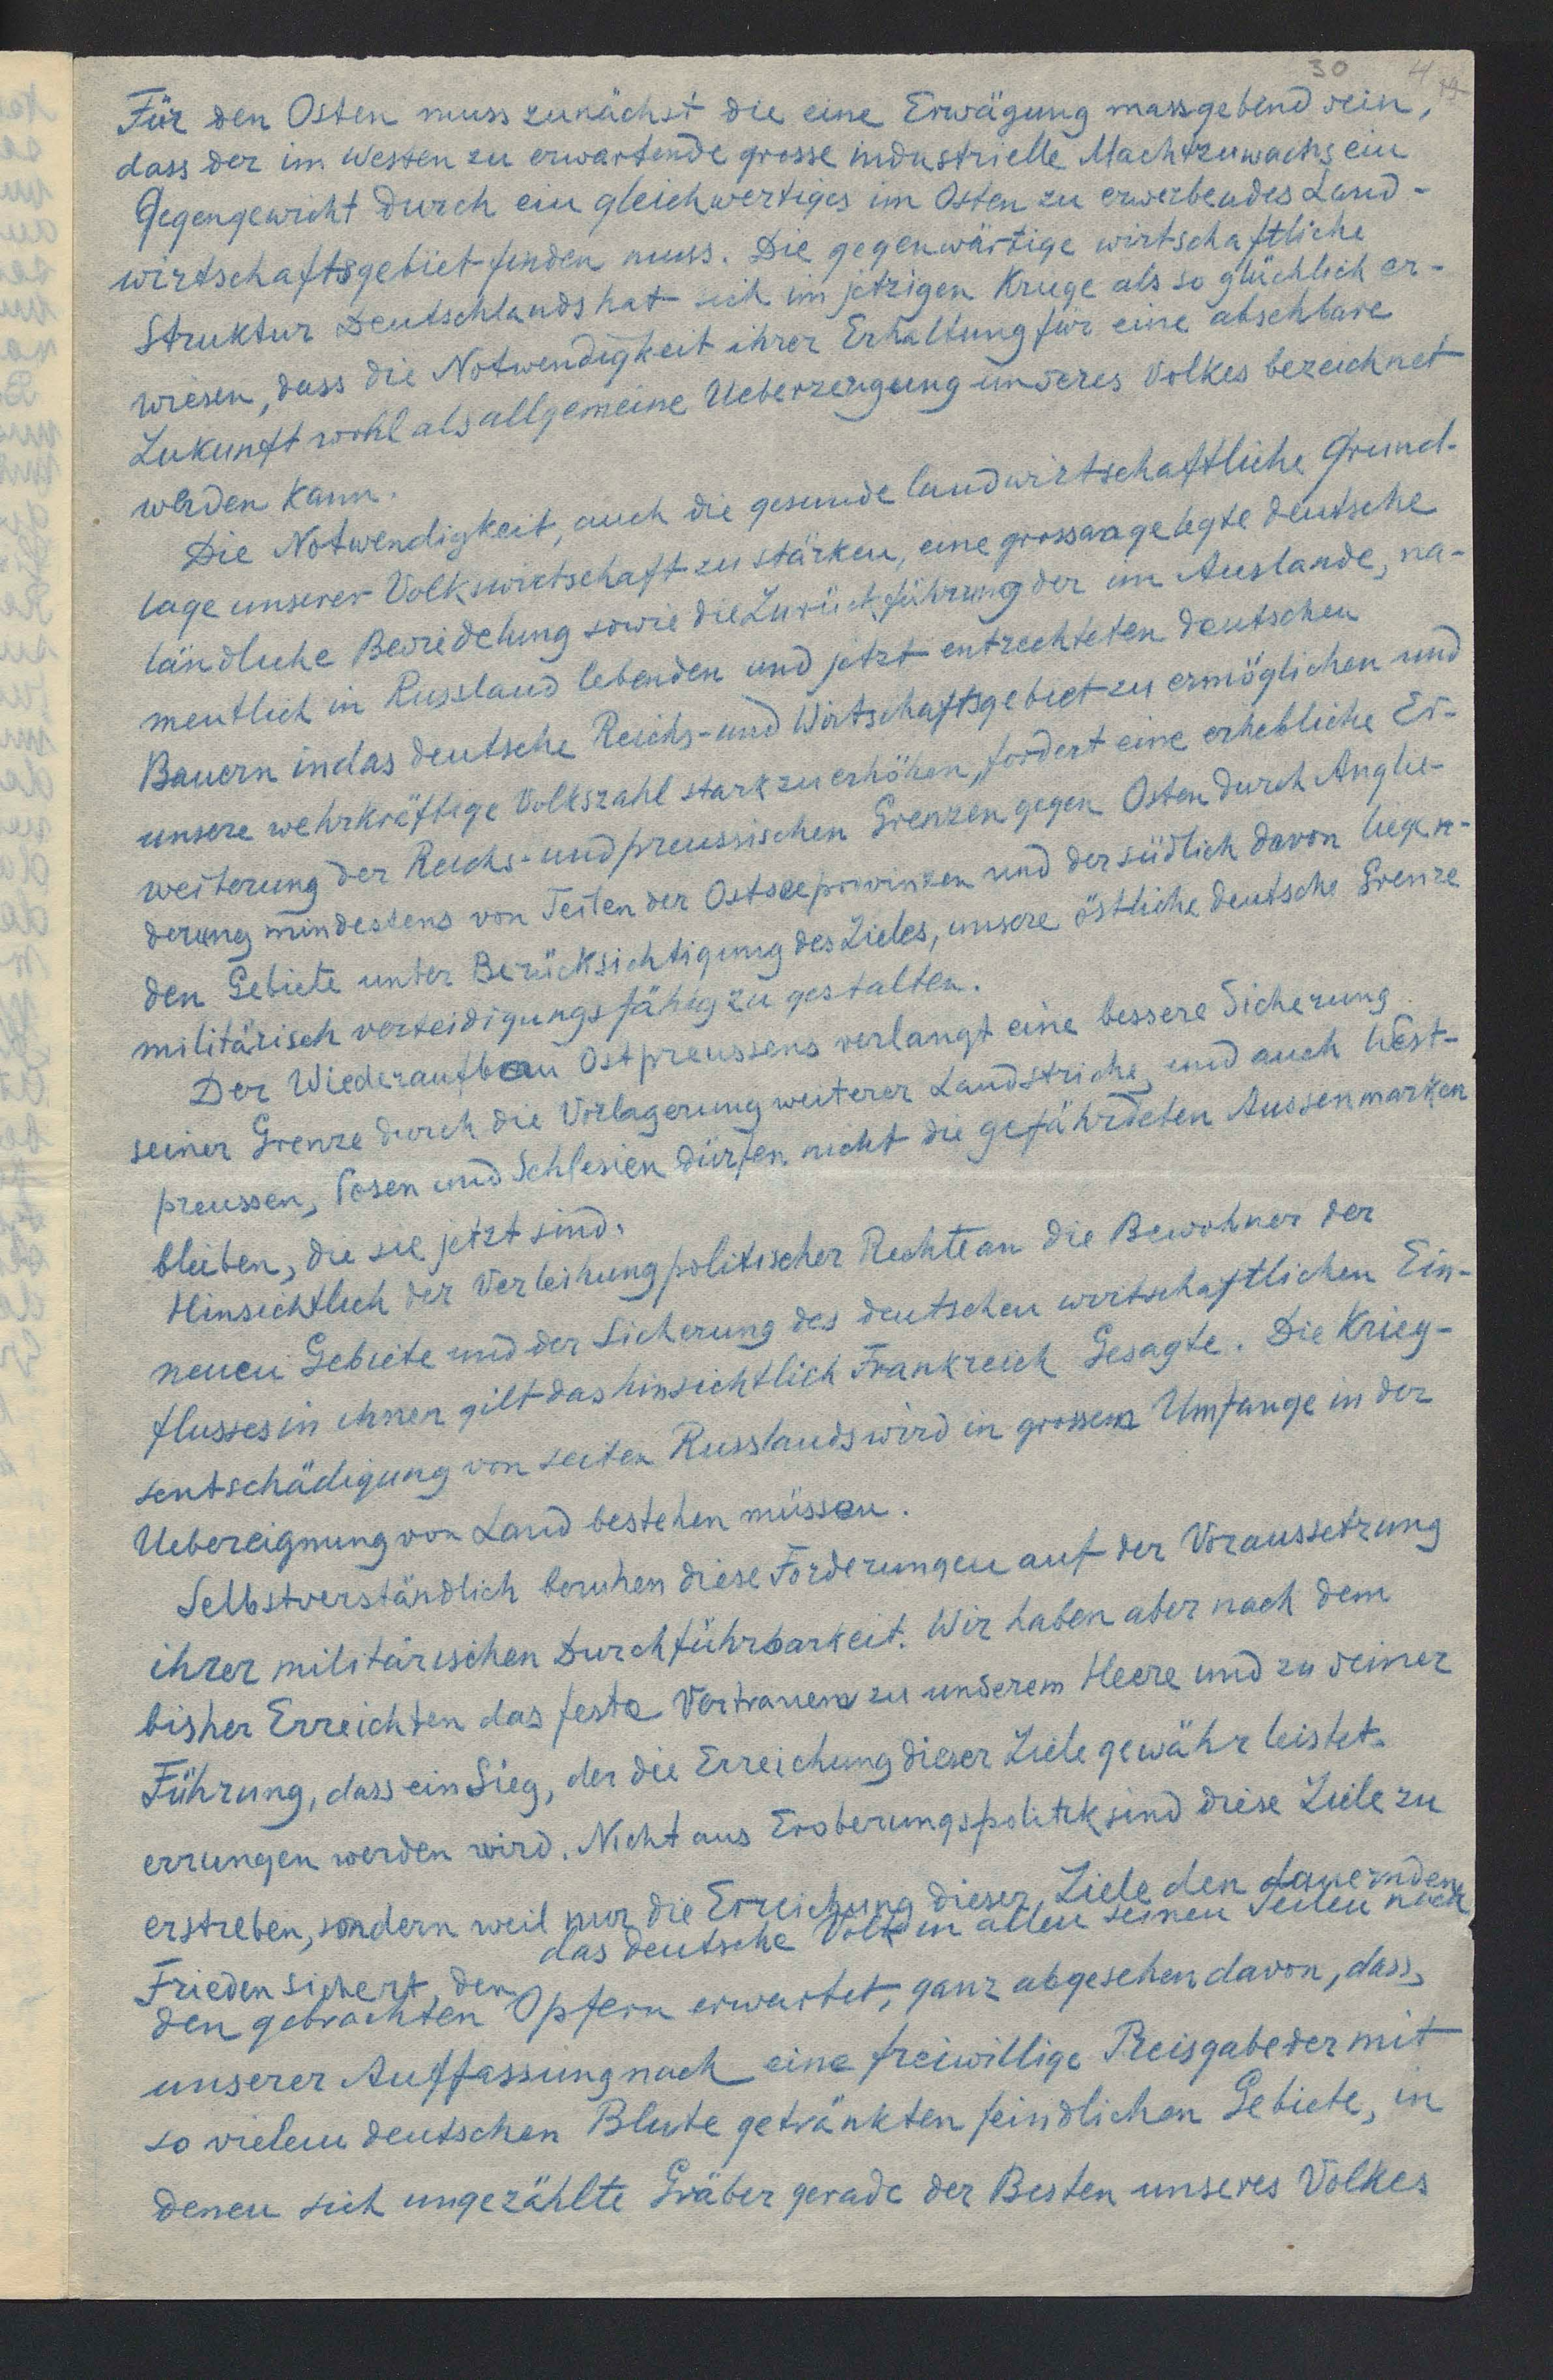 30 4 19
Für den Osten muss zunächst die eine Erwägung massgebend sein,
dass der im Westen zu erwartende grosse industrielle Machtzuwachs ein
Gegengewicht durch ein gleichwertiges im Osten zu erwerbendes Land-
wirtschaftsgebiet finden muss. Die gegenwärtige wirtschaftliche
Struktur Deutschlands hat sich im jetzigen Kriege als so glücklich er-
wiesen, dass die Notwendigkeit ihrer Erhaltung für eine absehbare
Zukunft wohl als allgemeine Ueberzeugung unseres Volkes bezeichnet
werden kann.
Die Notwendigkeit, auch die gesunde landwirtschaftliche Grund-
lage unserer Volkswirtschaft zu stärken, eine grossangelegte deutsche
ländliche Besiedelung sowie die Zurückführung der im Auslande, na-
mentlich in Russland lebenden und jetzt entrechteten deutschen
Bauern in das deutsche Reichs- und Wirtschaftsgebiet zu ermöglichen und
unsere wehrkräftige Volkszahl stark zu erhöhen, fordert eine erhebliche Er-
weiterung der Reichs- und preussischen Grenzen gegen Osten durch Anglie-
derung mindestens von Teilen der Ostseeprovinzen und der südlich davon liegen-
den Gebiete unter Berücksichtigung des Zieles, unsere östliche deutsche Grenze
militärisch verteidigungsfähig zu gestalten.
Der Wiederaufbau Ostpreussens verlangt eine bessere Sicherung
seiner Grenze durch die Vorlagerung weiterer Landstriche, und auch West-
preussen, Posen und Schlesien dürfen nicht die gefährdeten Aussenmarken
bleiben, die sie jetzt sind.
Hinsichtlich der Verleihung politischer Rechte an die Bewohner der
neuen Gebiete und der Sicherung des deutschen wirtschaftlichen Ein-
flusses in ihnen gilt das hinsichtlich Frankreich Gesagte. Die Krieg-
sentschädigung von seiten Russlands wird in grossem Umfange in der
Uebereignung von Land bestehen müssen.
Selbstverständlich beruhen diese Forderungen auf der Voraussetzung
ihrer militärischen Durchführbarkeit. Wir haben aber nach dem
bisher Erreichten das feste Vertrauen zu unserem Heere und zu seiner
Führung, dass ein Sieg, der die Erreichung dieser Ziele gewährleistet.
errungen werden wird. Nicht aus Eroberungspolitik sind diese Ziele zu
erstreben, sondern weil nur die Erreichung dieser Ziele den dauernden
Frieden sichert, den das deutsche Volk in allen seinen Teilen nach
den gebrachten Opfern erwartet, ganz abgesehen davon, dass,
unserer Auffassung nach eine freiwillige Preisgabe der mit
so vielem deutschen Blute getränkten feindlichen Gebiete, in
denen sich ungezählte Gräber gerade der Besten unseres Volkes